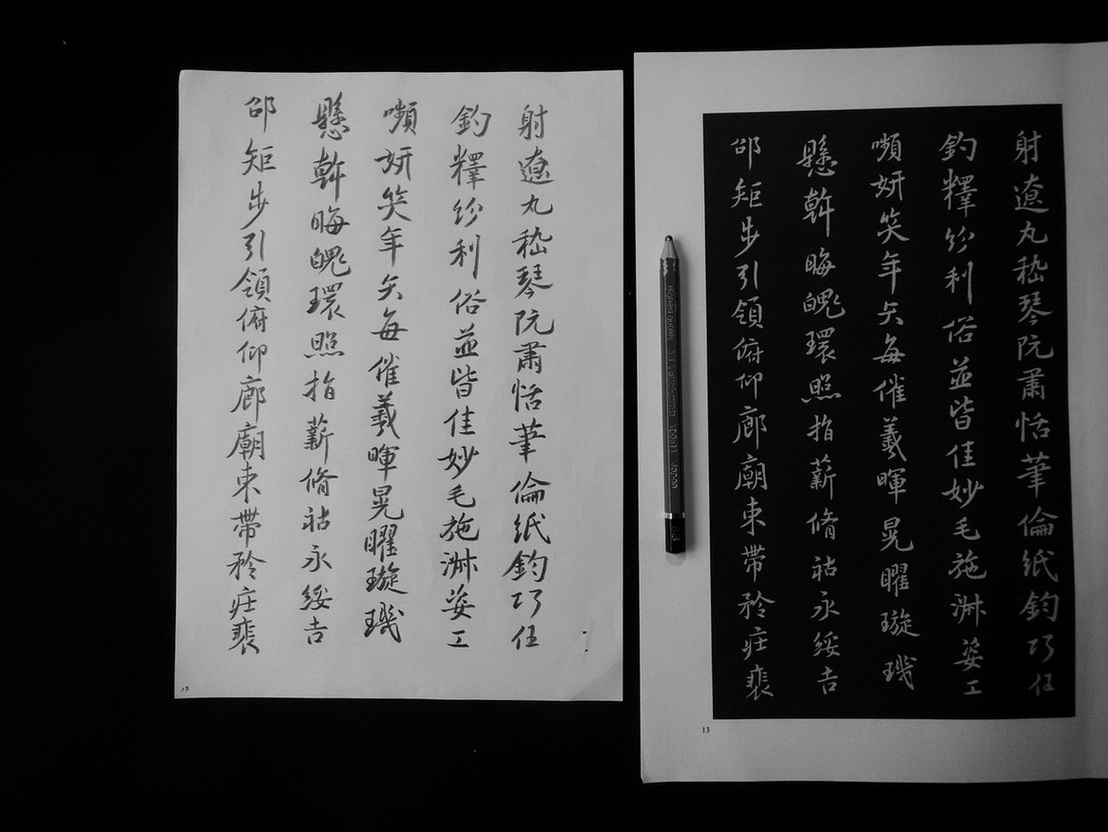 射遼丸嵇琴阮肅恬筆倫紙鈞巧任
釣釋紛利俗並皆佳妙毛施淋姿工
嚬妍笑年矢每催羲暉晃曜璇璣
懸斡晦魄環照指薪脩祜永綏吉
邵矩步引領俯仰廊廟束帶矜莊裴
13
射遼丸嵇琴阮肅恬筆倫紙鈞巧任
釣釋紛利俗並皆佳妙毛施淋姿工
嚬妍笑年矢每催羲暉晃曜璇璣
懸斡晦魄環照指薪脩祜永綏吉
邵矩步引領俯仰廊廟束帶矜莊裴
13